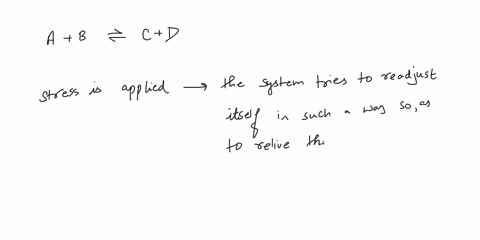 A + B ⇌ C + D
stress is applied → the system tries to readjust
itself in such a way so, as
to relive th